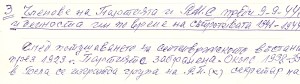 3 Членове на Партията и РМС преди 9.9.44г.
и дейността им по време на съпротивата 1941-1944г.
След потушаването на септемврийското въстание
през 1923г. Партията е забранена. Около 1930-33
в села се
група на
секретар